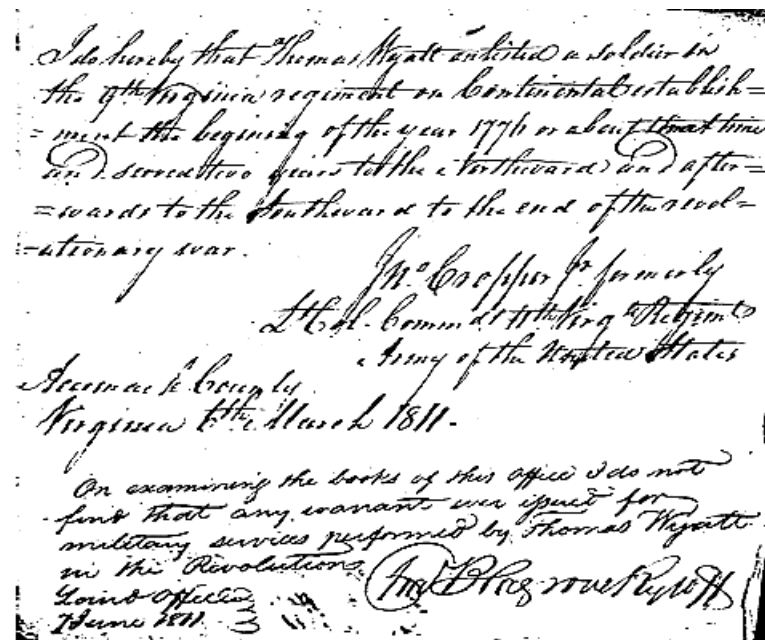 I do hereby that Thomas Wyatt enlisted a soldier in
the 9th Virginia regiment on Continental establish=
=ment the begining of the year 1776 or about that time
and served two years to the Northward and after=
=wards to the Southward to the end of the revol=
=utionary war.
Jno Cropper Jr. formerly
Lt Col. Commdt 11th Virga Regimt
Army of the United States
Accomack County
Virginia 6th March 1811.
On examining the books of this office I do not
find that any warrant ever issued for
military services performed by Thomas Wyatt
in the Revolution
Land Office
7 June 1811
Blagrove